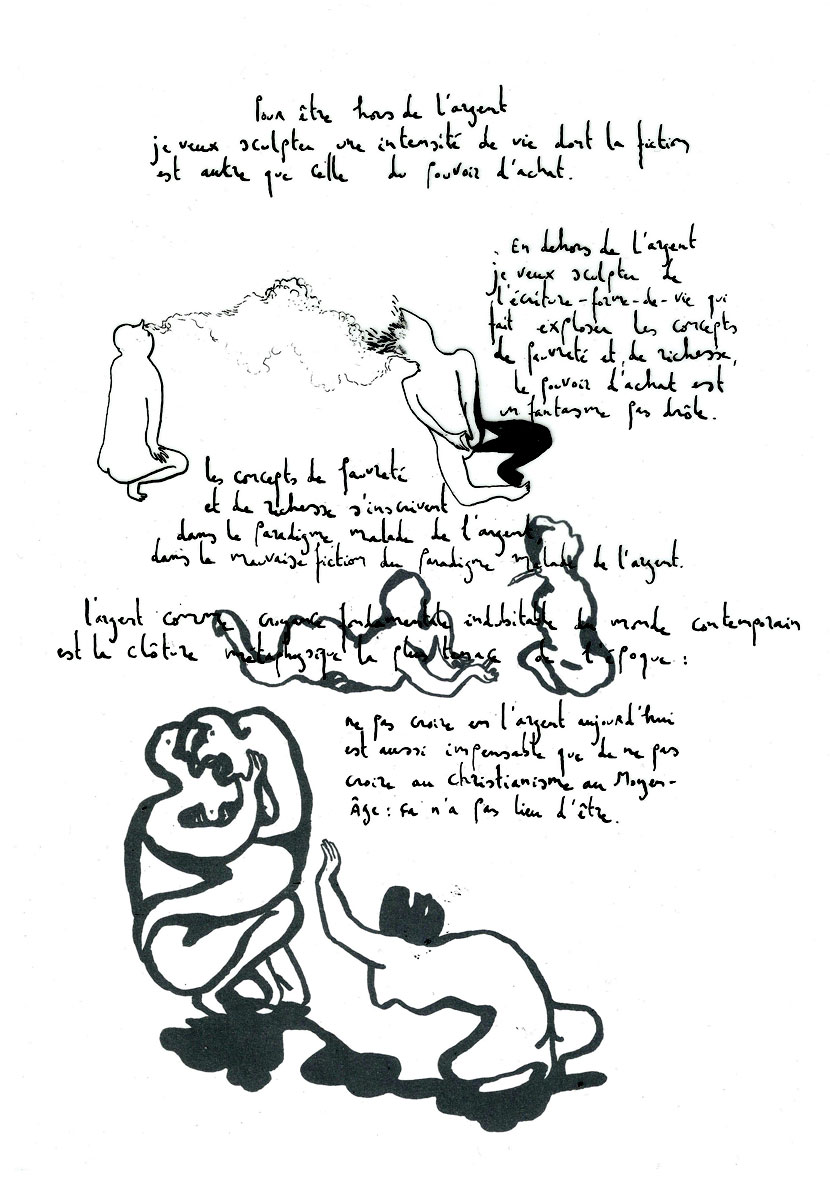 Pour être hors de l'argent
je veux sculpter une intensité de vie dont la fiction
est autre que celle du pouvoir d'achat.
En dehors de l'argent
je veux sculpter de
l'écriture-forme-de-vie qui
fait exploser les concepts
de pauvreté et de richesse,
le pouvoir d'achat est
un fantasme pas drôle.
les concepts de pauvreté
et de richesse s'inscrivent
dans le paradigme malade de l'argent,
dans la mauvaise fiction du paradigme malade de l'argent.
l'argent comme croyance fondamentale indubitable du monde contemporain
est la clôture métaphysique la plus tenace de l'époque :
ne pas croire en l'argent aujourd'hui
est aussi impensable que de ne pas
croire au christianisme au Moyen-
Âge : ça n'a pas lieu d'être.